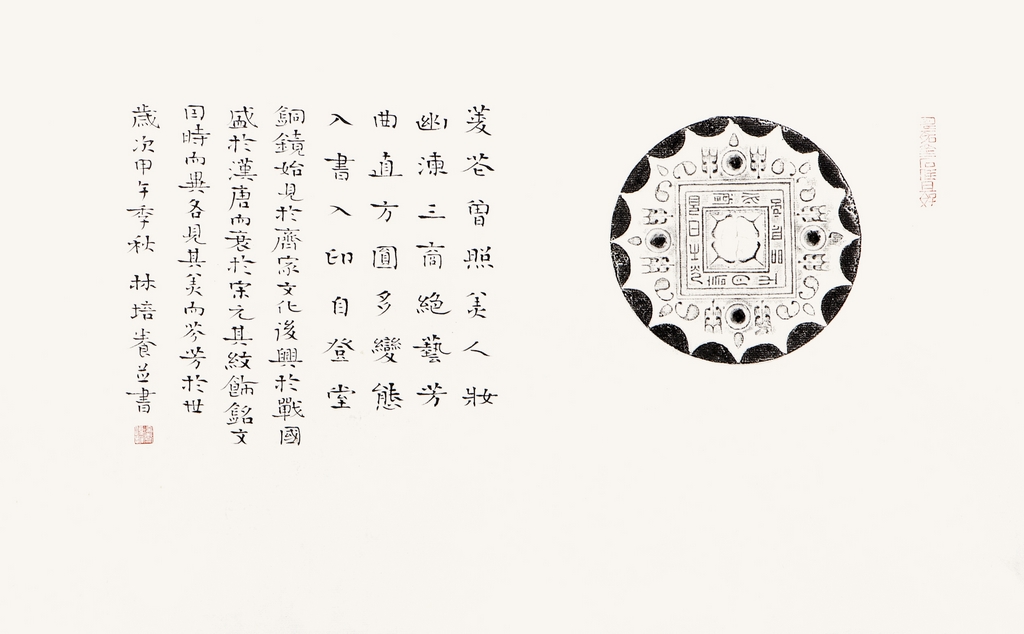 菱花曾照美人妝
幽湅三商絕藝芳
曲直方圓多變態
入書入印自登堂
銅鏡始見於齊家文化後興於戰國
盛於漢唐而衰於宋元其紋飾銘文
因時而異各見其美而芬芳於世
歲次甲午季秋 林培養並書